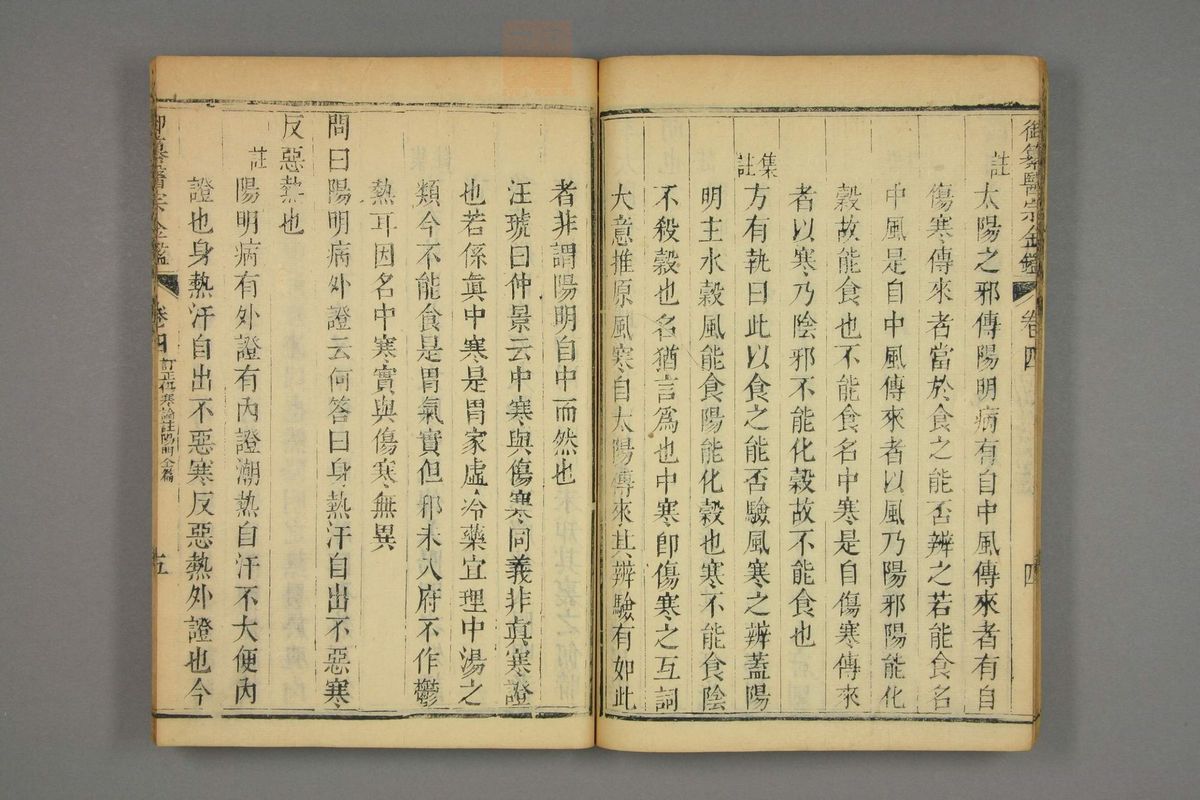 御纂醫宗金鑑 卷四 四
註
太陽之邪傳陽明病有自中風傳來者有自
傷寒傳來者當於食之能否辨之若能食名
中風是自中風傳來者以風乃陽邪陽能化
穀故能食也不能食名中寒是自傷寒傳來
者以寒乃陰邪不能化穀故不能食也
集註
方有執曰此以食之能否驗風寒之辨蓋陽
明主水穀風能食陽能化穀也寒不能食陰
不殺穀也名猶言爲也中寒卽傷寒之互詞
大意推原風寒自太陽傳來其辨驗有如此
者非謂陽明自中而然也
汪琥曰仲景云中寒與傷寒同義非真寒證
也若係眞中寒是胃家虛冷藥宜理中湯之
類今不能食是胃氣實但邪未入府不作鬱
熱耳因名中寒實與傷寒無異
問曰陽明病外證云何答曰身熱汗自出不惡寒
反惡熱也
註
陽明病有外證有內證潮熱自汗不大便內
證也身熱汗自出不惡寒反惡熱外證也今
御纂醫宗金鑑 卷四 訂正傷寒論註陽明全篇 五